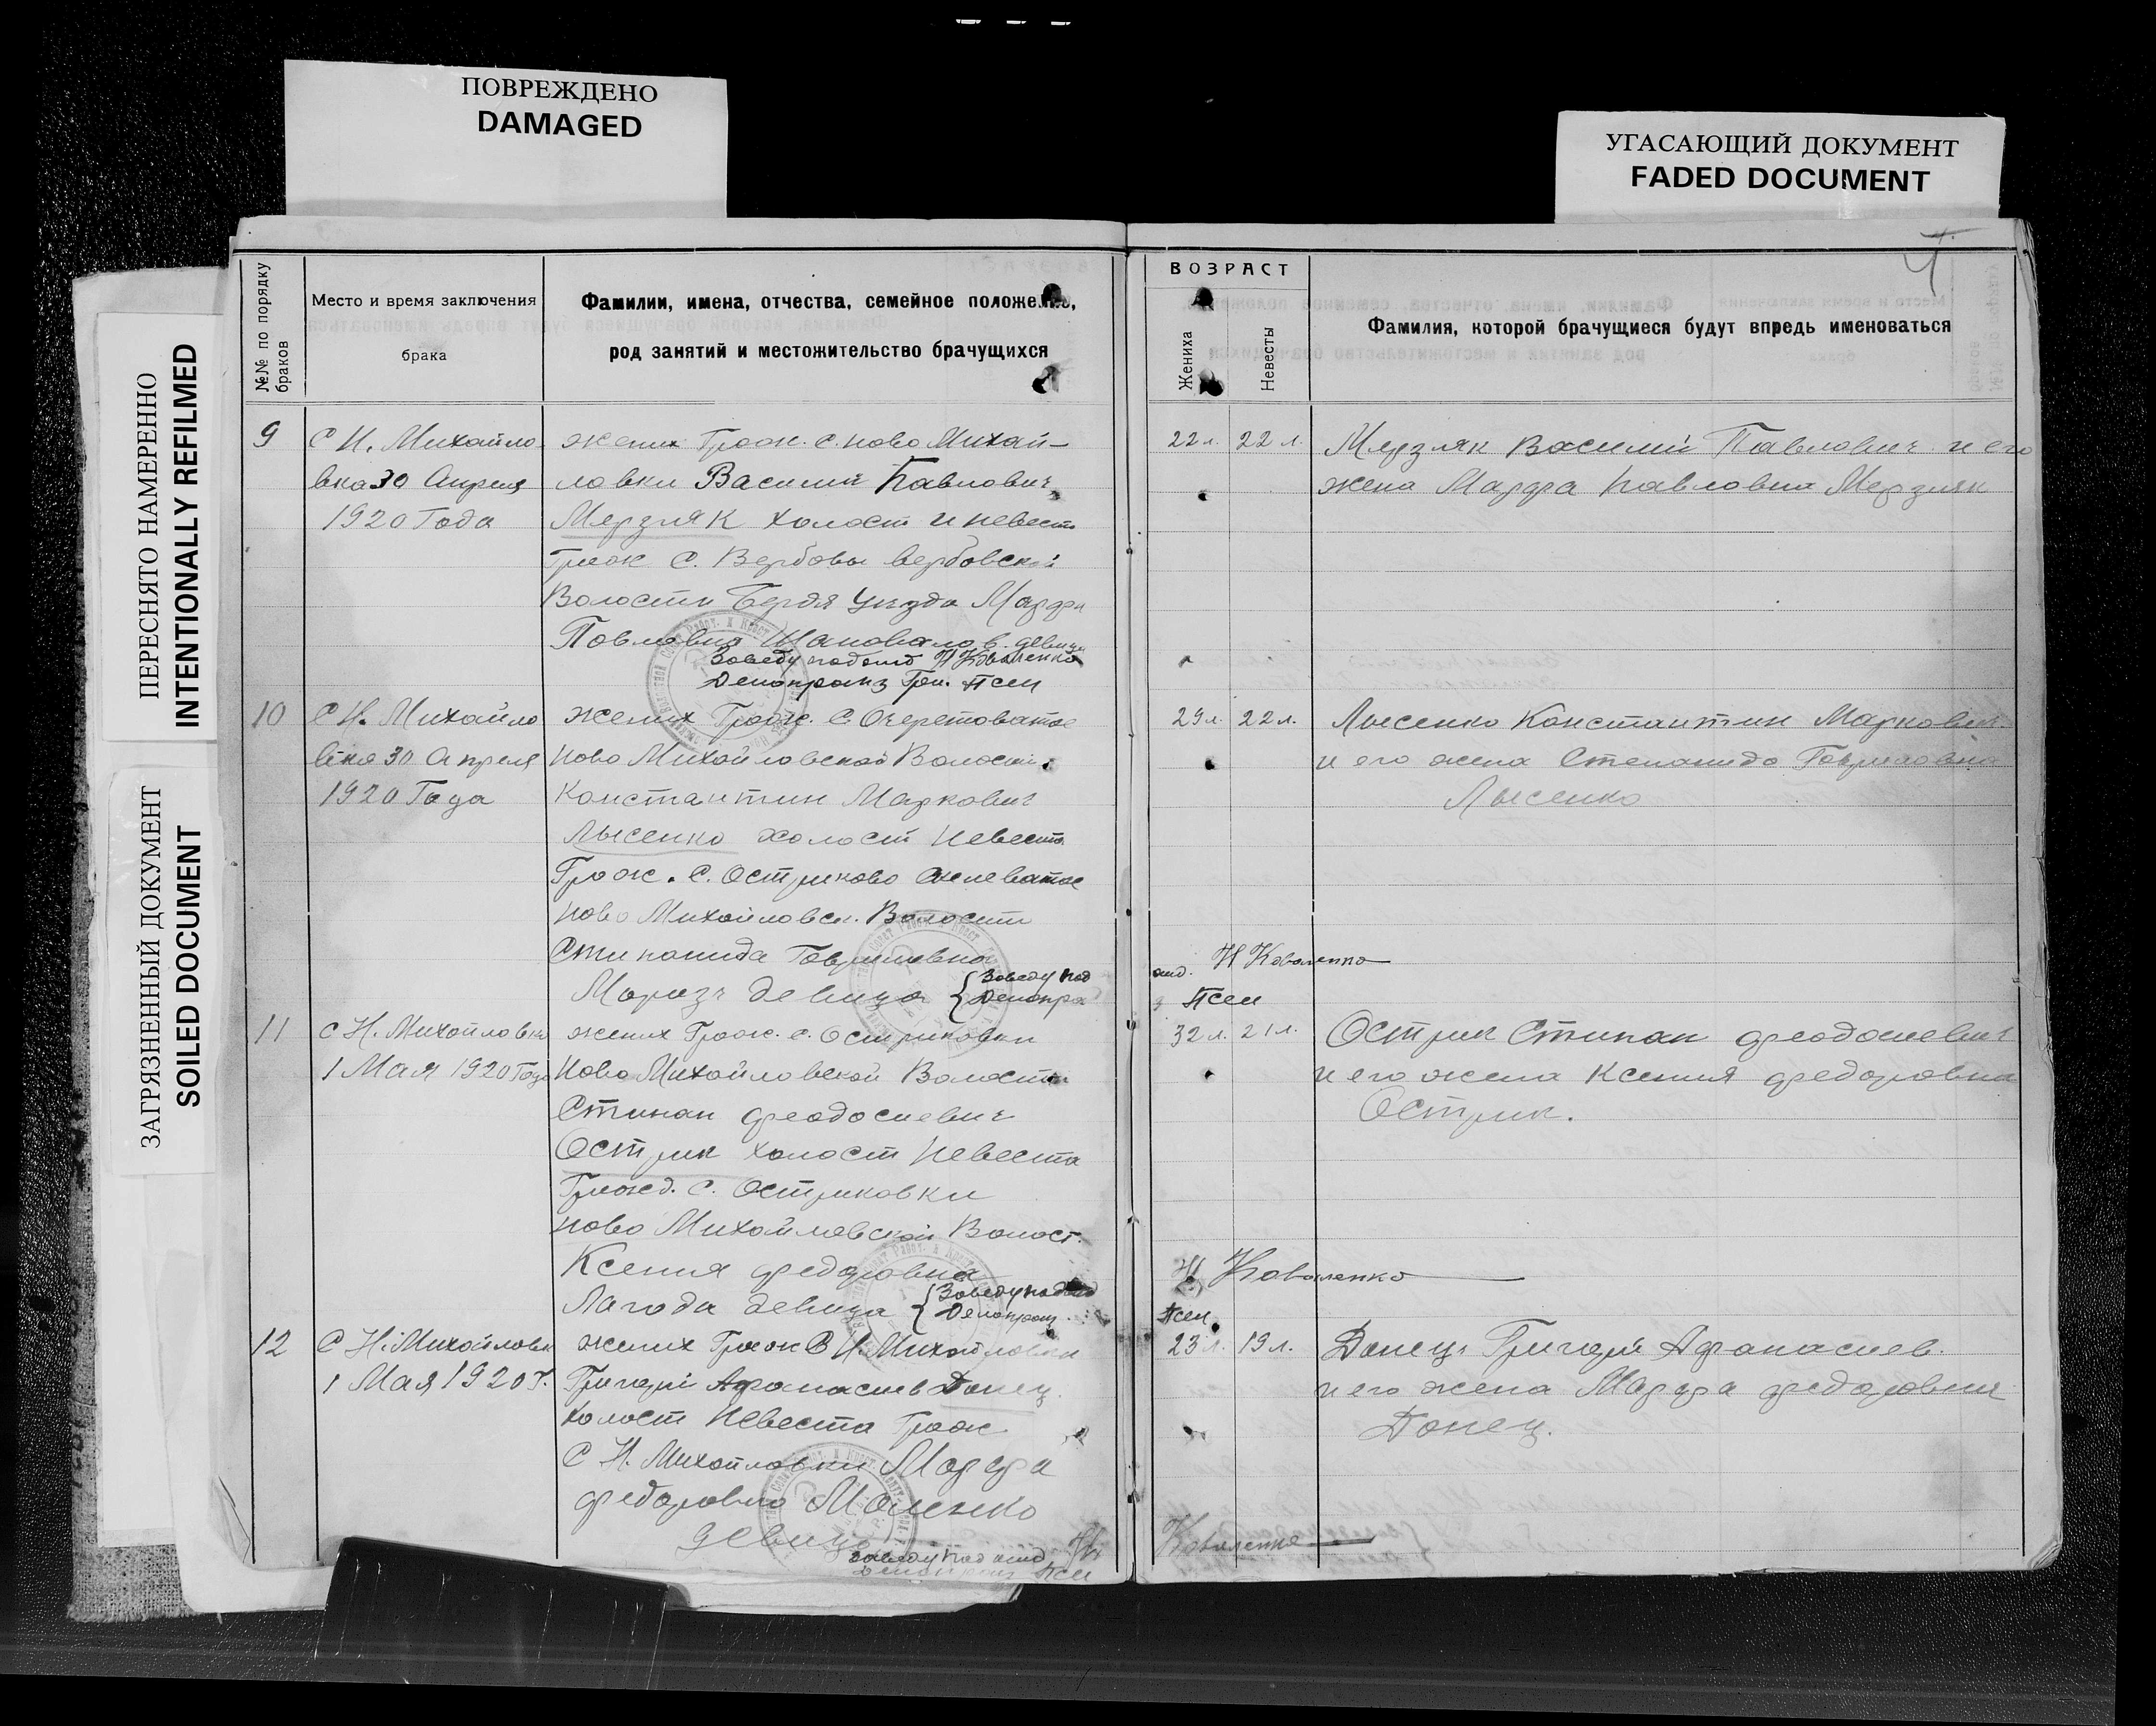 ПОВРЕЖДЕНО
DAMAGED
УГАСАЮЩИЙ ДОКУМЕНТ
FADED DOCUMENT
ПЕРЕСНЯТО НАМЕРЕННО
INTENTIONALLY REFILMED
ЗАГРЯЗНЕННЫЙ ДОКУМЕНТ
SOILED DOCUMENT
№№ по порядку
браков
Место и время заключения
брака
Фамилии, имена, отчества, семейное положение,
род занятий и местожительство брачущихся
4
ВОЗРАСТ
Жениха
Невесты
Фамилия, которой брачущиеся будут впредь именоваться
9
С Н. Михайло
вка 30 Апреля
1920 Года
жених Граж. с. ново Михай-
ловки Василий Павлович
Мерзляк холост и невест
Граж С. Вербовы вербовской
Волости Бердя уезда Марфа
Повловна Шаповалов. девица
Заведу подотд Н Коваленко
Делопроиз Грн. Псел
22 л. 22 л.
Мерзляк Василий Павлович и его
жена Марфа Павловна Мерзляк
10
С Н. Михайло
вка 30 Апреля
1920 Года
жених Граж. С. Очеретоватое
Ново Михайловской Волости
Константин Маркович
Лысенко холост Невеста
Граж. С. Остриково
Ново Михайловск. Волости
Стипанида Гавриловна
Мороз девица
Заведу под
Делопро
29 л. 22 л.
Лысенко Константин Маркович
и его жена Степанида Гавриловна
Лысенко
отд. Н Коваленко
з Псел
11
С Н. Михайловка
1 Мая 1920 Года
жених Граж. с. Остриковки
Ново Михайловской Волости
Стипан феодосиевич
Острик холост Невеста
Гражд. с. Остриковки
ново Михайловской Волост.
Ксения федоровна
Лагода девица
Заведу подотд
Делопроиз
32 л. 21 л.
Острик Стипан феодосиевич
и его жена Ксения федоровна
Острик.
Н Коваленко
Псел
12
С Н. Михайловк
1 Мая 1920 г.
жених Граж С Н. Михайловки
Григорий Афанасиев Донец
холост Невеста Граж
С Н. Михайловки Марфа
федоровна Маленко
девица
Заведу подотд Н
Делопроиз Псел
23 л. 19 л.
Донец Григорий Афанасиев.
и его жена Марфа федоровна
Донец.
Коваленко